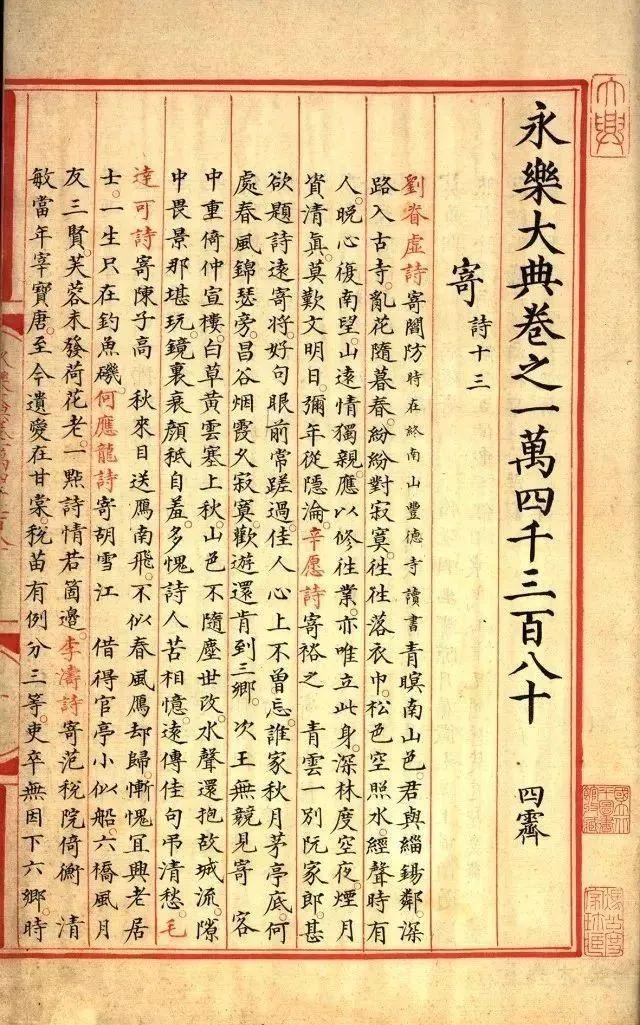 永樂大典卷之一萬四千三百八十 四霽
寄 詩十三
劉眘虛詩寄閻防時在終南山豐德寺讀書青暝南山色。君與緇錫鄰。深
路入古寺。亂花隨暮春。紛紛對寂寞。徃徃落衣巾。松色空照水。經聲時有
人。晚心復南望。山遠情獨親。應以修徃業。亦唯立此身。深林度空夜。煙月
資清真。莫歎文明日。彌年從隱淪。辛愿詩寄裕之 青雲一別阮家郎。甚
欲題詩遠寄將。好句眼前常蹉過。佳人心上不曾忘。誰家秋月茅亭底。何
處春風錦瑟旁。昌谷烟霞久寂寞。歡遊還肯到三鄉。次王無競見寄 客
中重倚仲宣樓。白草黃雲塞上秋。山色不隨塵世改。水聲還抱故城流。隙
中畏景那堪玩。鏡裏衰顏秪自羞。多愧詩人苦相憶。遠傳佳句弔清愁。毛
達可詩寄陳子高 秋來日送鴈南飛。不似春風鴈却歸。慚愧宜興老居
士。一生只在釣魚磯。何應龍詩寄胡雪江 借得官亭小似船。六橋風月
友三賢。芙蓉未發荷花老。一點詩情若箇邊。李濤詩寄范稅院倚衡 清
敏當年宰寶唐。至今遺愛在甘棠。稅苗有例分三等。吏卒無因下六鄉。時
大興